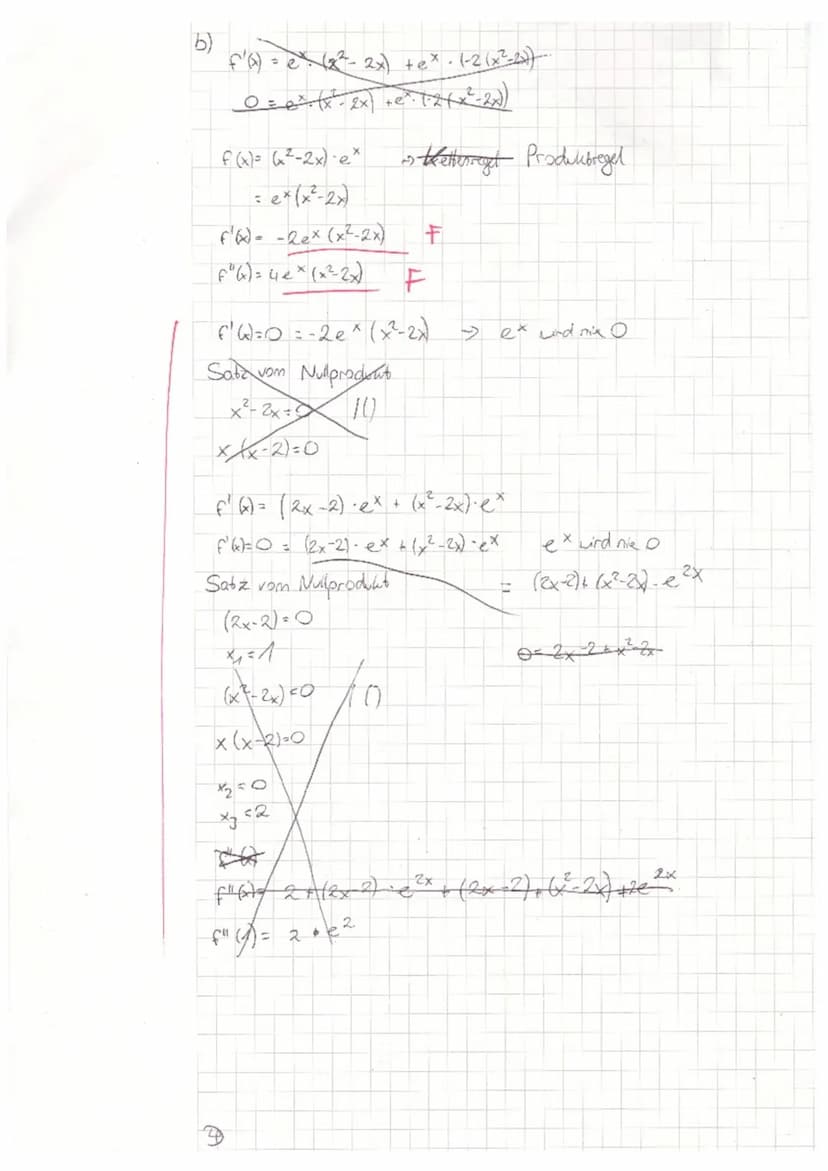 b)
f'(x) = e^x · (x² - 2x) + e^x · (-2(x²-2x))
0 = e^x · (x² - 2x) + e^x · (-2(x²-2x))
f(x) = (x²-2x) · e^x → Kettenregel Produktregel
= e^x (x²-2x)
f'(x) = -2e^x (x²-2x) F
f''(x) = 4e^x (x²-2x) F
f'(x)=0 = -2e^x (x²-2x) → e^x wird nie 0
Satz vom Nullprodukt
x²-2x=0 |()
x(x-2)=0
f'(x) = (2x-2) · e^x + (x²-2x) · e^x
f'(x)=0 = (2x-2) · e^x + (x²-2x) · e^x e^x wird nie 0
Satz vom Nullprodukt = (2x-2)+(x²-2x) · e^2x
(2x-2)=0
x₁=1 0=2x-2+x²-2x
(x²-2x)=0 |()
x(x-2)=0
x₂=0
x₃=2
f''(x)
f''(x)= 2+(2x-2) · e^2x + (2x-2)+(x²-2x)+2e^2x
f''(1) = 2 · e²